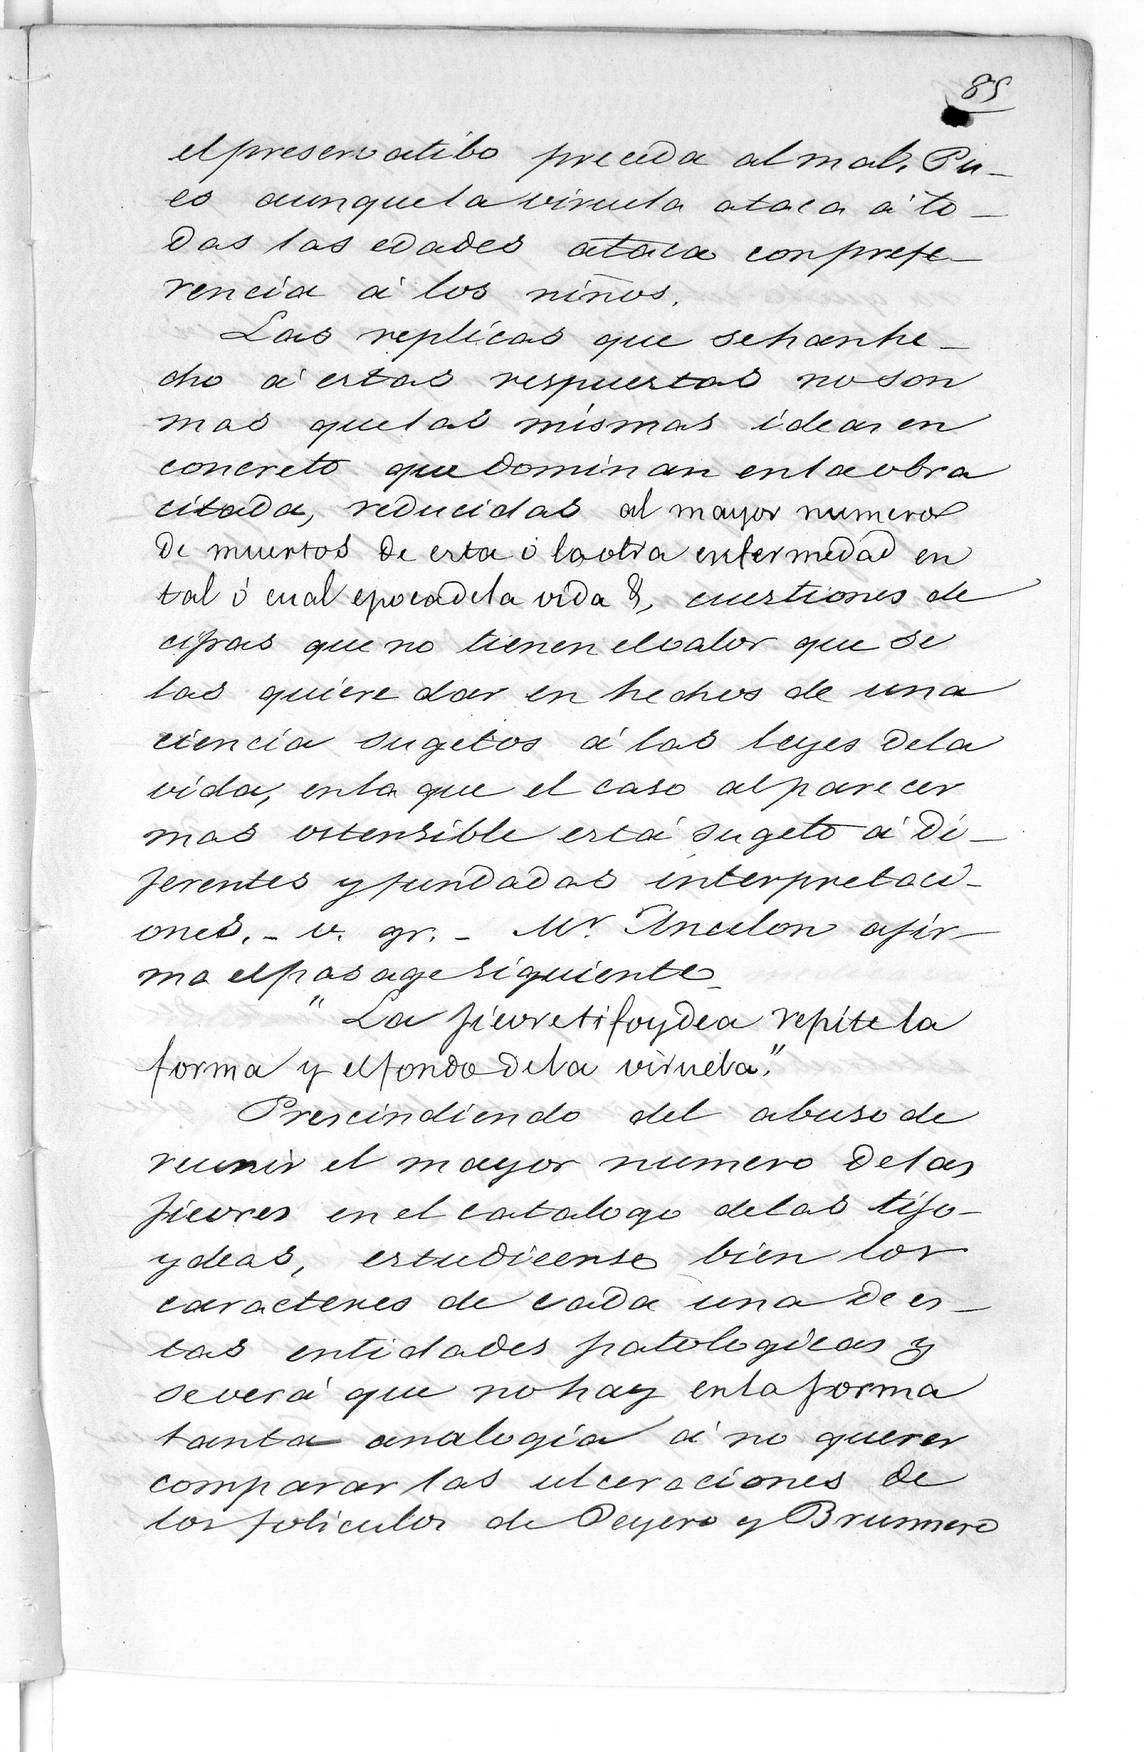 85
el preservatibo preceda al mal. Pu-
es aunque la viruela ataca á to-
das las edades ataca con prefe-
rencia á los niños.
Las replicas que se han he-
cho á estas respuestas no son
mas que las mismas ideas en
concreto que dominan en la obra
citada, reducidas al mayor numero
de muertos de esta ó la otra enfermedad en
tal ó cual epoca de la vida &, cuestiones de
cifras que no tienen el valor que se
las quiere dar en hechos de una
ciencia sugetos á las leyes de la
vida, en la que el caso al parecer
mas ostensible está sugeto á di-
ferentes y fundadas interpretaci-
ones. - v. gr. - Mr. Ancelon afir-
ma el pasage siguiente
" La fievre tifoydea repite la
forma y el fondo de la viruela."
Prescindiendo del abuso de
reunir el mayor numero de las
fievres en el catalogo de las tifo-
ydeas, estudieense bien los
caracteres de cada una de es-
tas entidades patologicas y
se verá que no hay en la forma
tanta analogia á no querer
comparar las ulceraciones de
los foliculos de Peyero y Brunnero